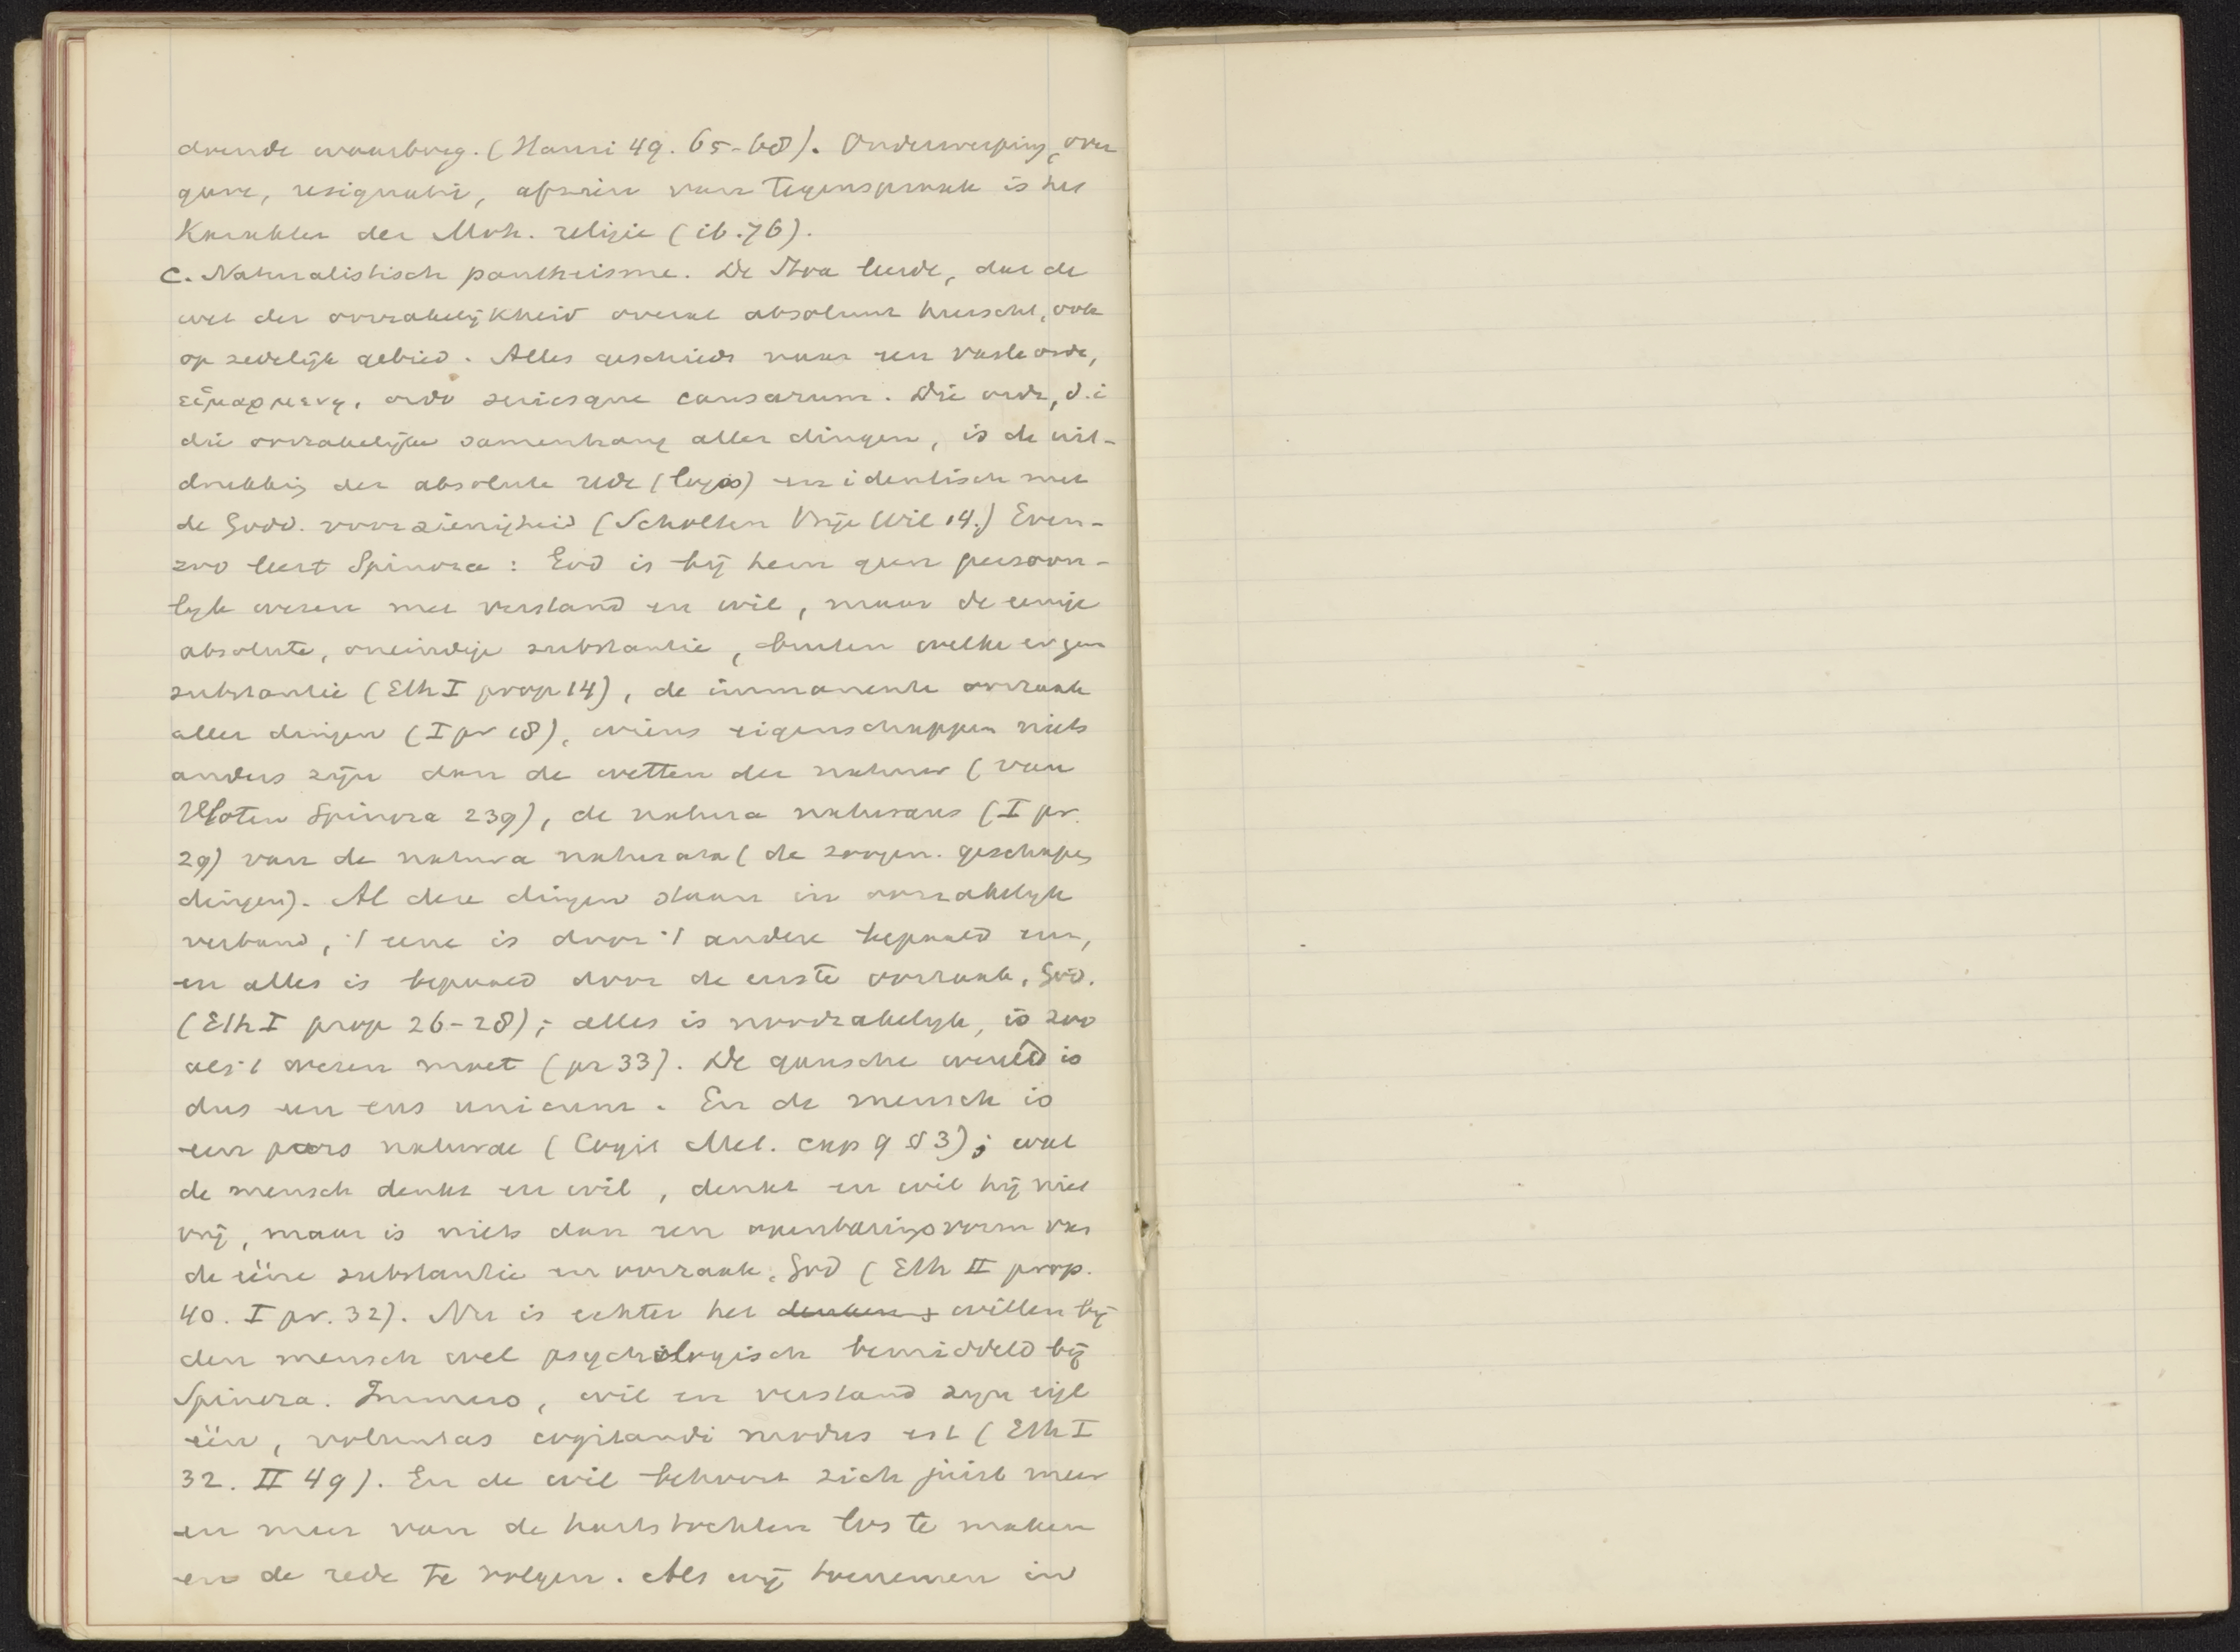 drende waarborg. (Hauri 49. 65-68). Onderwerping, over
gave, resignatie, afzien van tegenspraak is het
Karakter der Moh. religie (ib. 76).
c. Naturalistisch pantheisme. De Stoa leerde, dat de
wet der oorzakelijkheid overal absoluut heerscht, ook
op zedelijk gebied. Alles geschiedt naar een vaste orde,
εἱμαρμενη, ordo seriesque causarum. Die orde, d.i
die oorzakelijke samenhang aller dingen, is de uit-
drukking der absolute rede (logos) en identisch met
de Godd. voorzienigheid (Scholten Vrije Wil 14.) Even-
zoo leert Spinoza: God is bij hem geen persoon-
lijk wezen met verstand en wil, maar de eenige
absolute, oneindige substantie, buiten welke er geen
substantie (Eth I prop 14), de immanente oorzaak
aller dingen (I pr 18), wiens eigenschappen niets
anders zijn dan de wetten der natuur (van
Vloten Spinoza 239), de natura naturans (I pr.
29) van de natura naturata (de zoogen. geschapen
dingen). Al deze dingen staan in oorzakelijk
verband, 't eene is door 't andere bepaald enz,
en alles is bepaald door de eerste oorzaak, God.
(Eth I prop 26-28); alles is noodzakelijk, is zoo
als 't wezen moet (pr 33). De gansche wereld is
dus een ens unicum. En de mensch is
een pars naturae (Cogit Met. cap 9 § 3); wat
de mensch denkt en wil, denkt en wil hij niet
vrij, maar is niets dan een openbaringsvorm van
de ééne substantie en oorzaak, God (Eth II prop.
40. I pr. 32). Nu is echter het denken + willen bij
den mensch wel psychologisch bemiddeld bij
Spinoza. Immers, wil en verstand zijn eigl
één, voluntas cogitandi modus est (Eth I
32. II 49). En de wil behoort zich juist meer
en meer van de hartstochten los te maken
en de rede te volgen. Als wij toenemen in